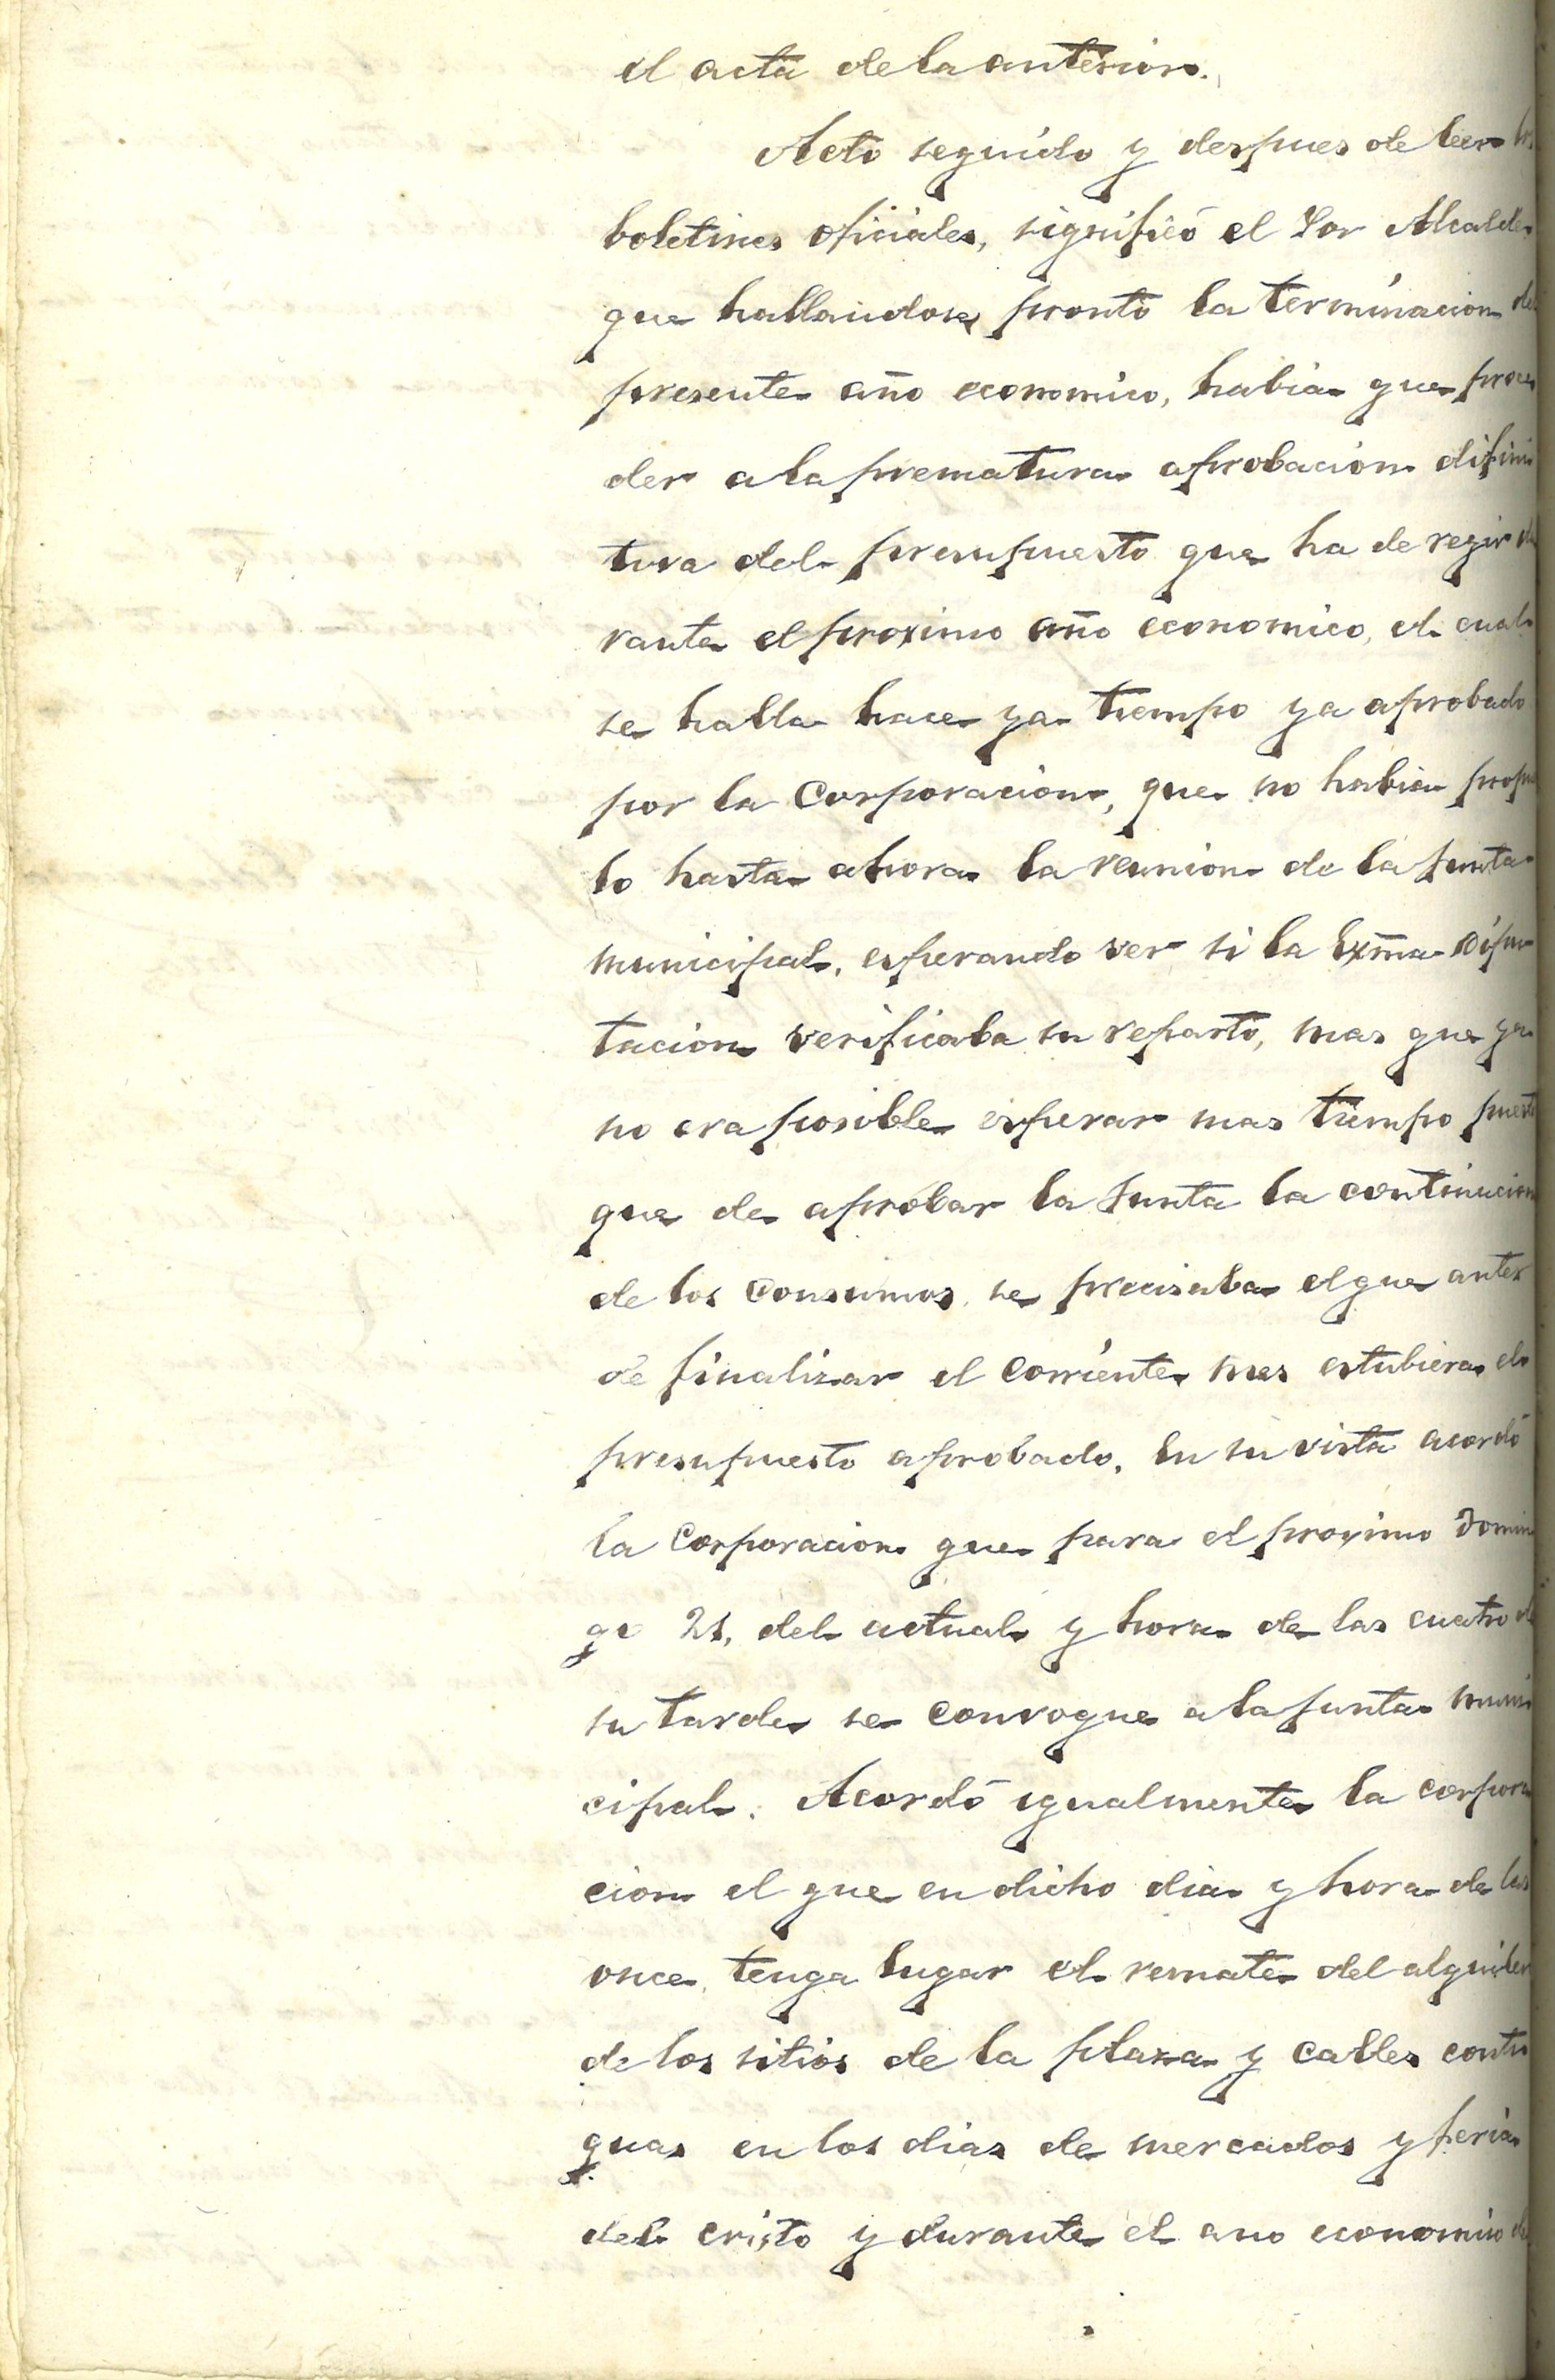 el acta de la anterior.
Acto seguido y despues de leer los
boletines oficiales, significó el Sor Alcalde
que hallandose pronto la terminacion del
presente año economico, habia que proce
der a la prematura aprobacion difini
tiva del presupuesto que ha de regir du
rante el proximo año economico, el cual
se halla hace ya tiempo ya aprobado
por la Corporacion, que no habia propues
to hasta ahora la reunion de la Junta
municipal, esperando ver si la Exma Dipu
tacion verificaba su reparto, mas que ya
no era posible esperar mas tiempo puesto
que de aprobar la Junta la continucion
de los Consumos, se precisaba el que antes
de finalizar el corriente mes estubiera el
presupuesto aprobado. En su vista acordó
la Corporacion que para el proximo Domin
go 21, del actual y hora de las cuatro de
su tarde se convoque a la Junta muni
cipal. Acordó igualmente la corpora
cion el que en dicho dia y hora de las
once, tenga lugar el remate del alquiler
de los sitios de la plaza y calles conti
guas en los dias de mercados y feria
del Cristo y durante el ano economico de